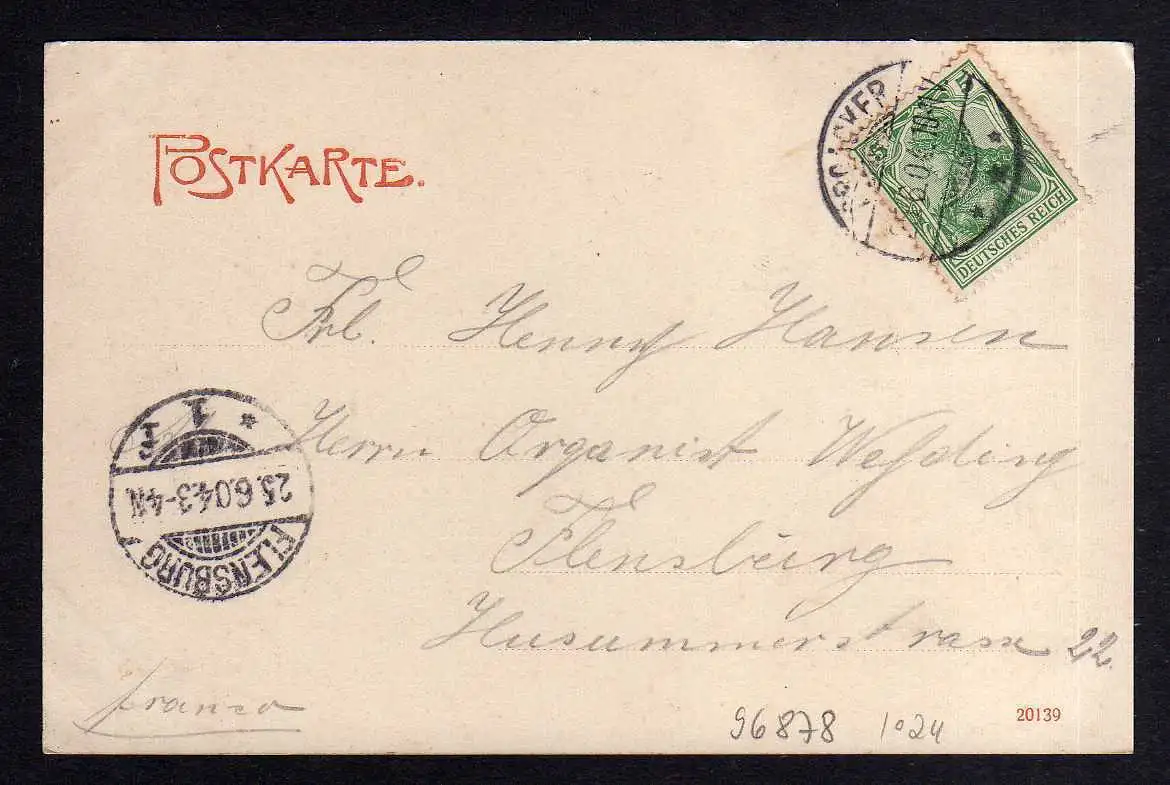 POSTKARTE.
5 5
DEUTSCHES REICH
Frl. Henny Hansen
Herrn Organist Wehding
Flensburg
Husummerstrasse 22.
FLENSBURG
25.6.04.3-4N.
* 1 f
franco
96878 1024
20139